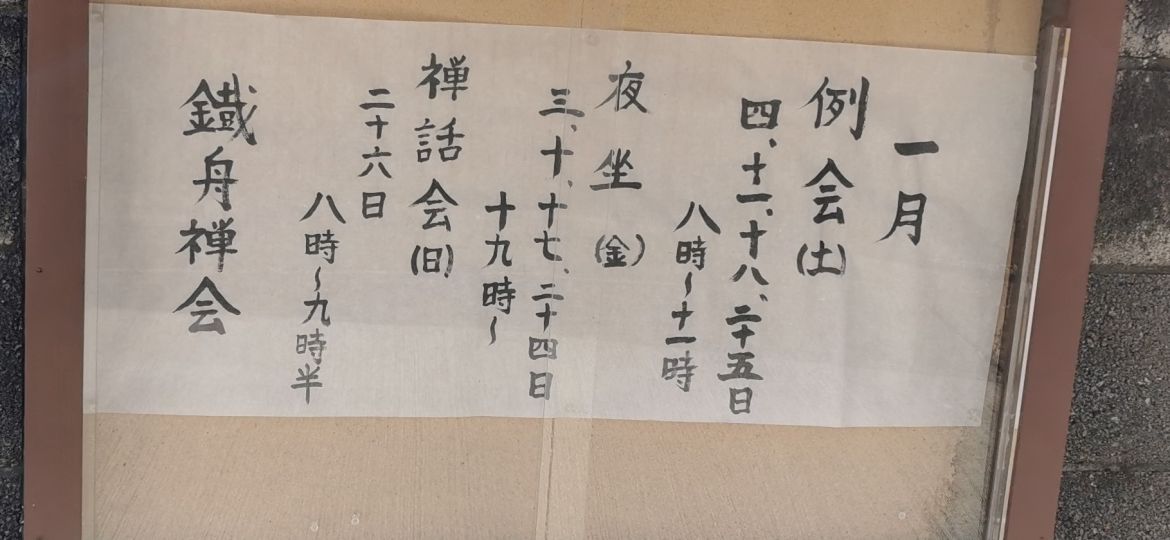 一月
例会(土)
四、十一、十八、二十五日
八時~十一時
夜坐(金)
三、十、十七、二十四日
十九時~
禅話会(日)
二十六日
八時~九時半
鐵舟禅会